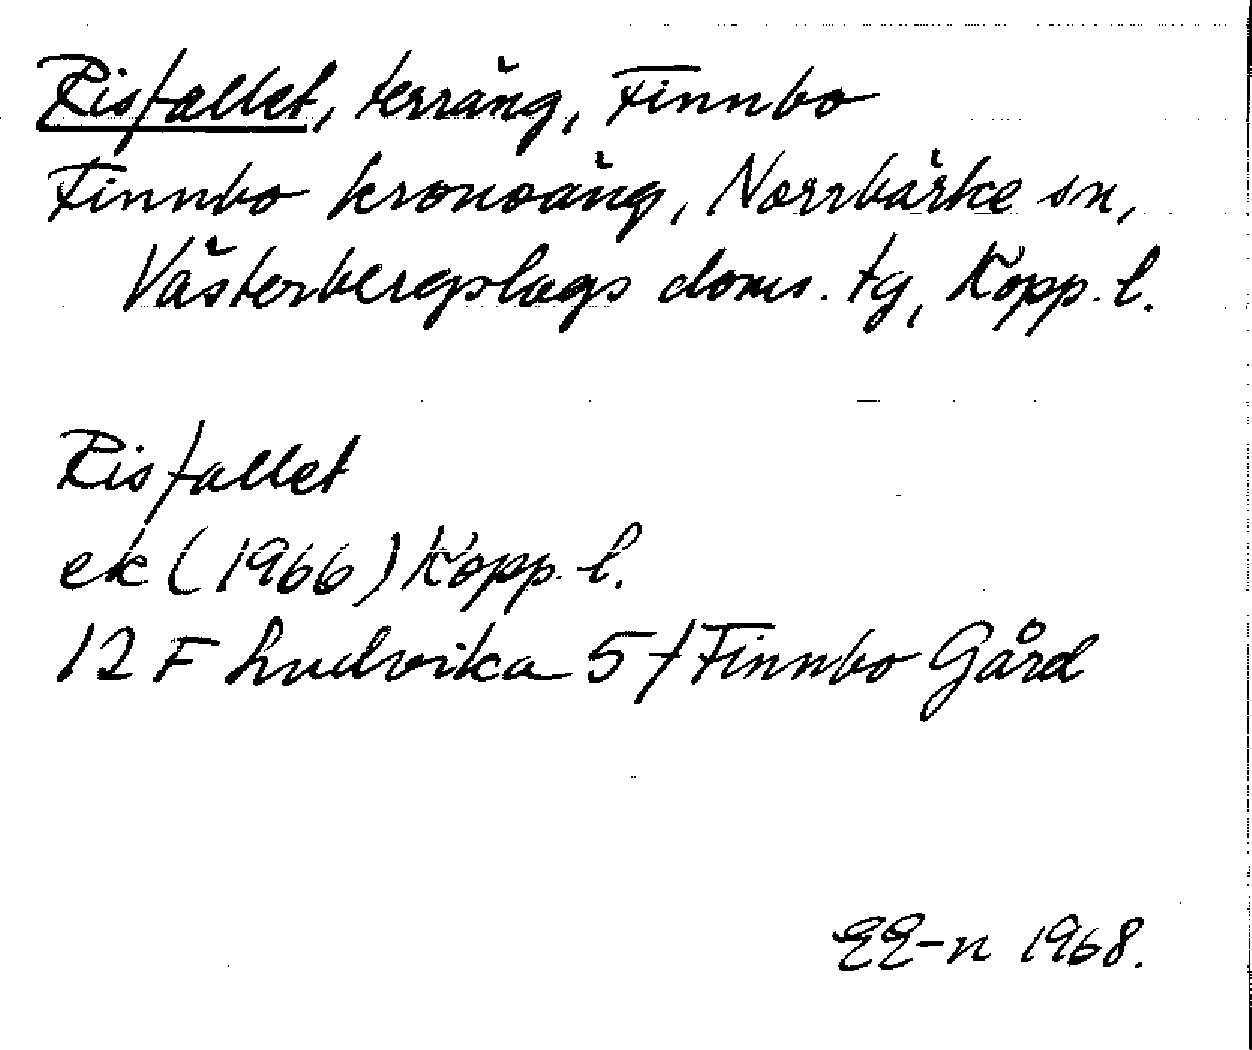 Risfallet, terräng, Finnbo
Finnbo kronoäng, Norrbärke sn,
Västerbergslags doms. tg, Kopp. l.
Risfallet
ek (1966) Kopp. l.
12 F Ludvika 5 f Finnbo Gård
EE-n 1968.